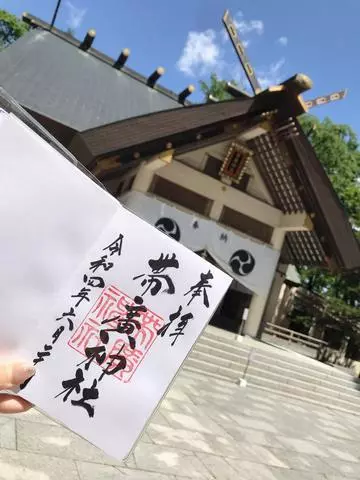 奉拝
帯廣神社
令和四年六月